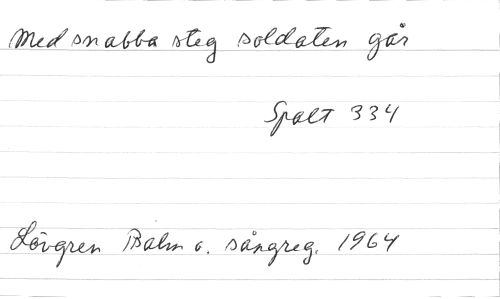 Med snabba steg soldaten går
Spalt 334
Lövgren Psalm o. sångreg. 1964